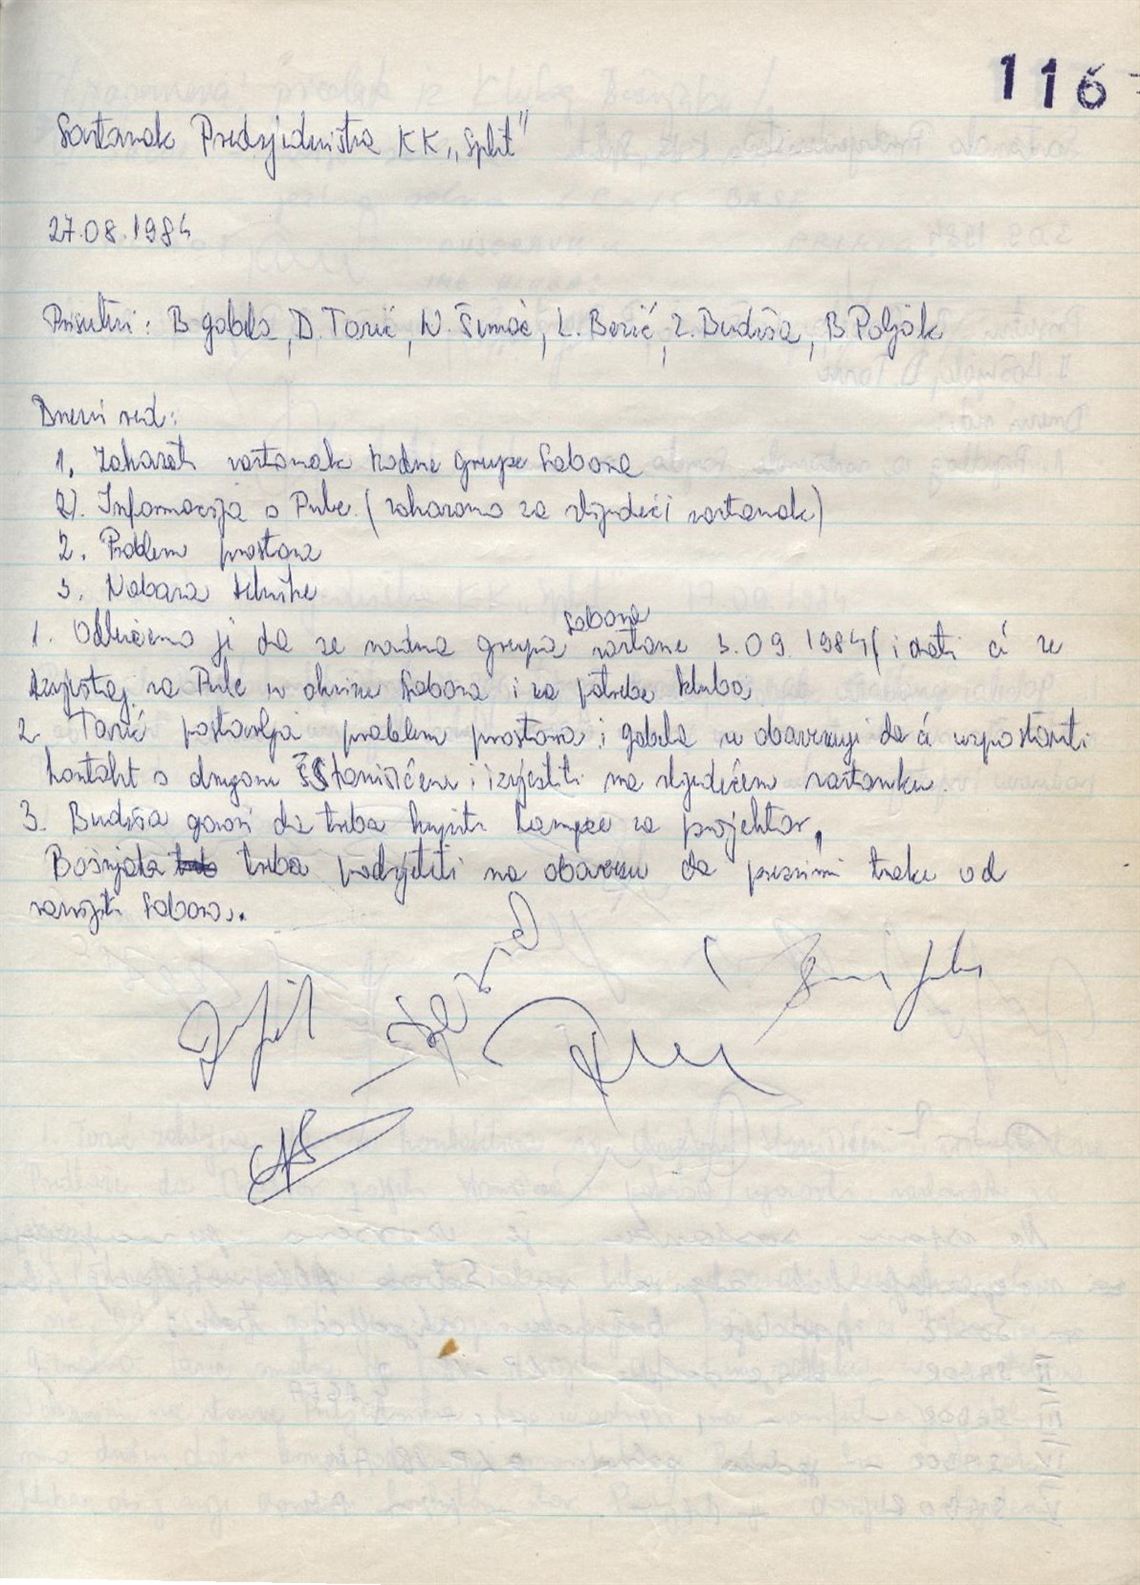 116
Sastanak Predsjedništva KK „Split"
27.08.1984
Prisutni: B gabela, D. Tonić, N. Šimac, L. Bezić, Z. Budiša, B Poljak
Dnevni red:
1. Zakazati sastanak radne grupe Sabora
2). Informacija o Pule (zakazano za slijedeći sastanak)
2. Problem prostora
3. Nabava tehnike
1. Odlučeno je da se radna grupa Sabora sastane 3.09 1984 (i dati će se
izvještaj sa Pule u okviru Sabora i za potrebe kluba
2. Tonić postavlja problem prostora i gabela se obavezuje da će uspostaviti
kontakt s drugom Stanišićem i izvjestiti na slijedećem sastanku.
3. Budiša govori da treba kupiti lampe za projektor,
Bošnjaka treba podsjetiti na obavezu da presnimi traku od
Sabora.